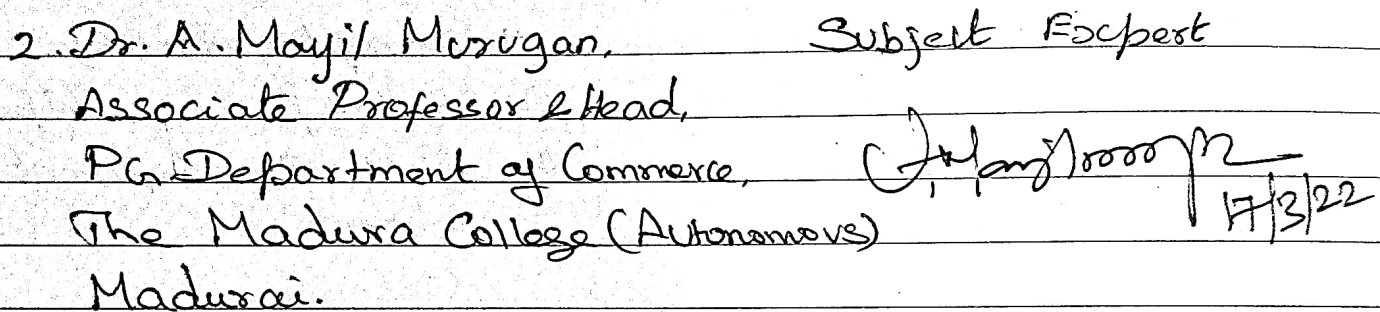 2. Dr. A. Mayil Murugan, Subject Expert
Associate Professor & Head,
PG Department of Commerce,
17/3/22
The Madura College (Autonomous)
Madurai.